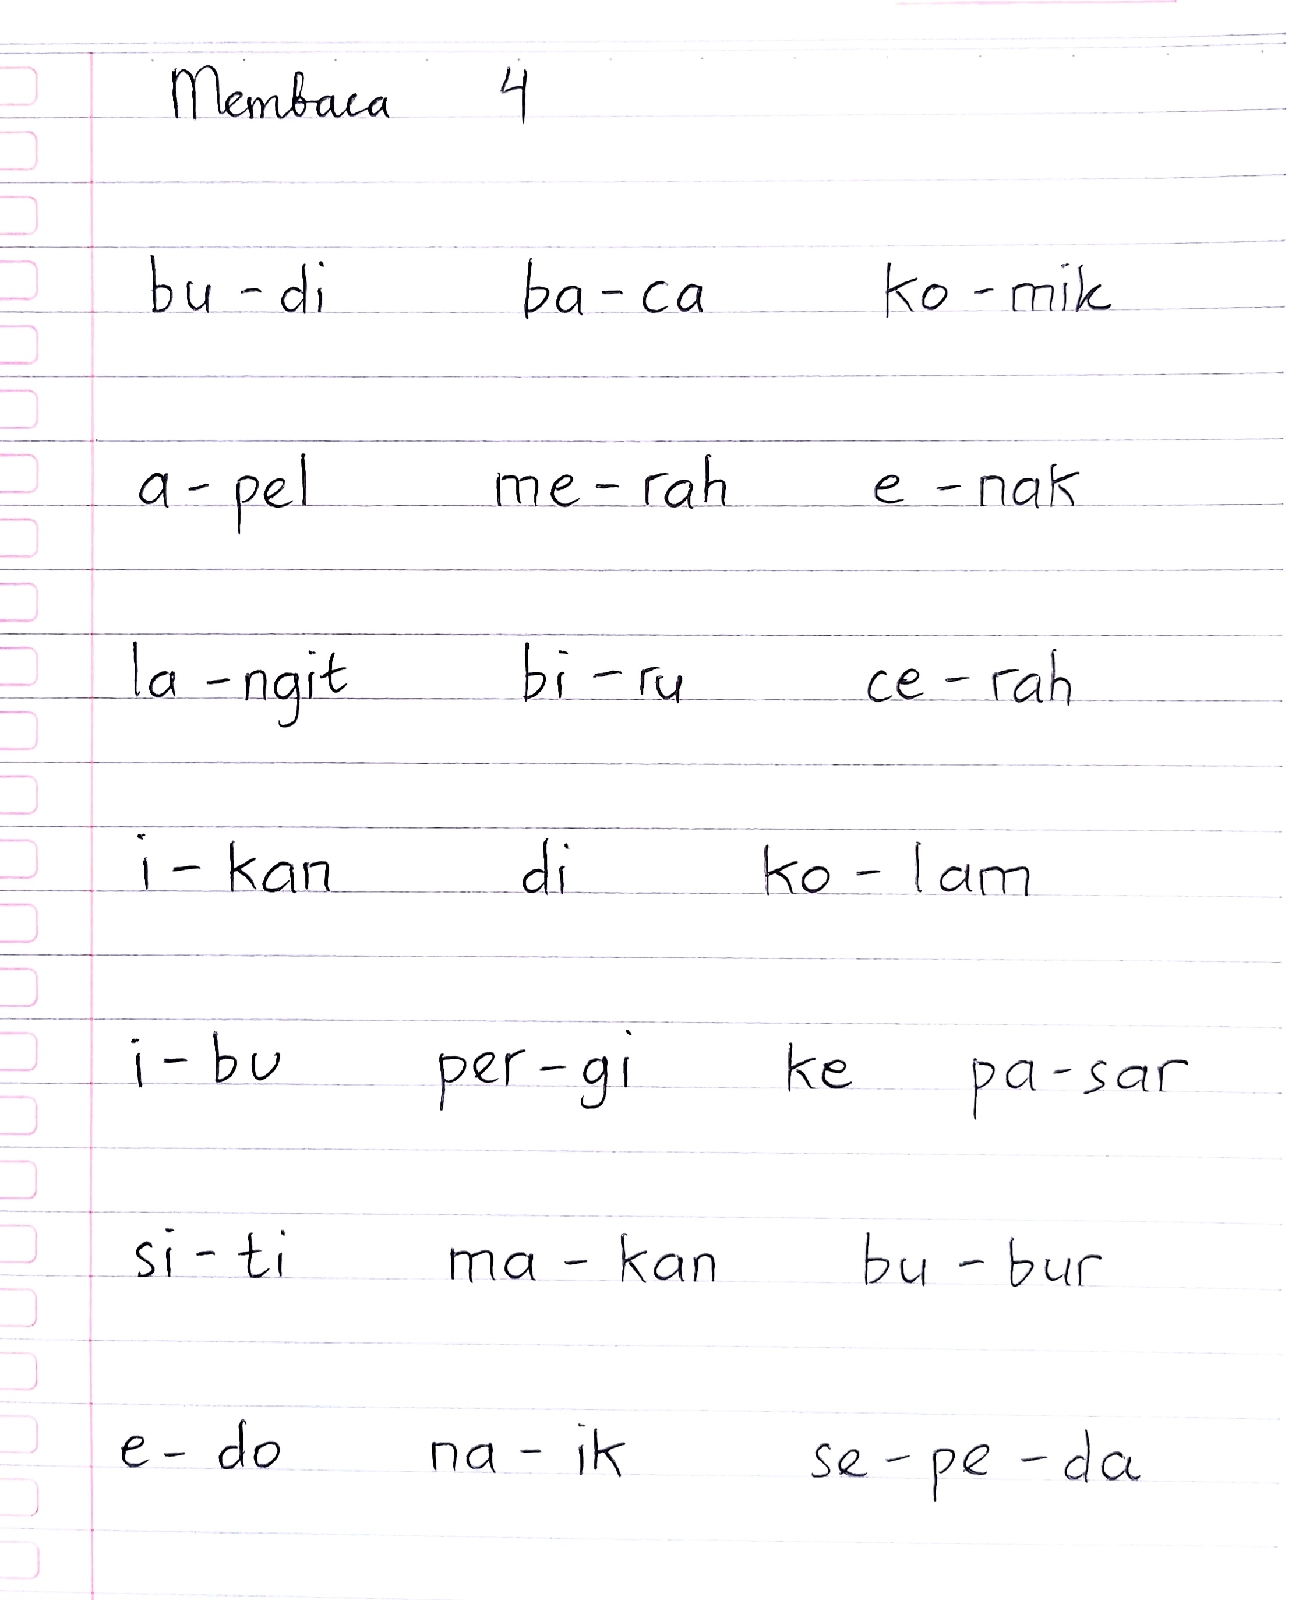 Membaca 4
bu - di ba - ca ko - mik
a - pel me - rah e - nak
la - ngit bi - ru ce - rah
i - kan di ko - lam
i - bu per - gi ke pa - sar
si - ti ma - kan bu - bur
e - do na - ik se - pe - da